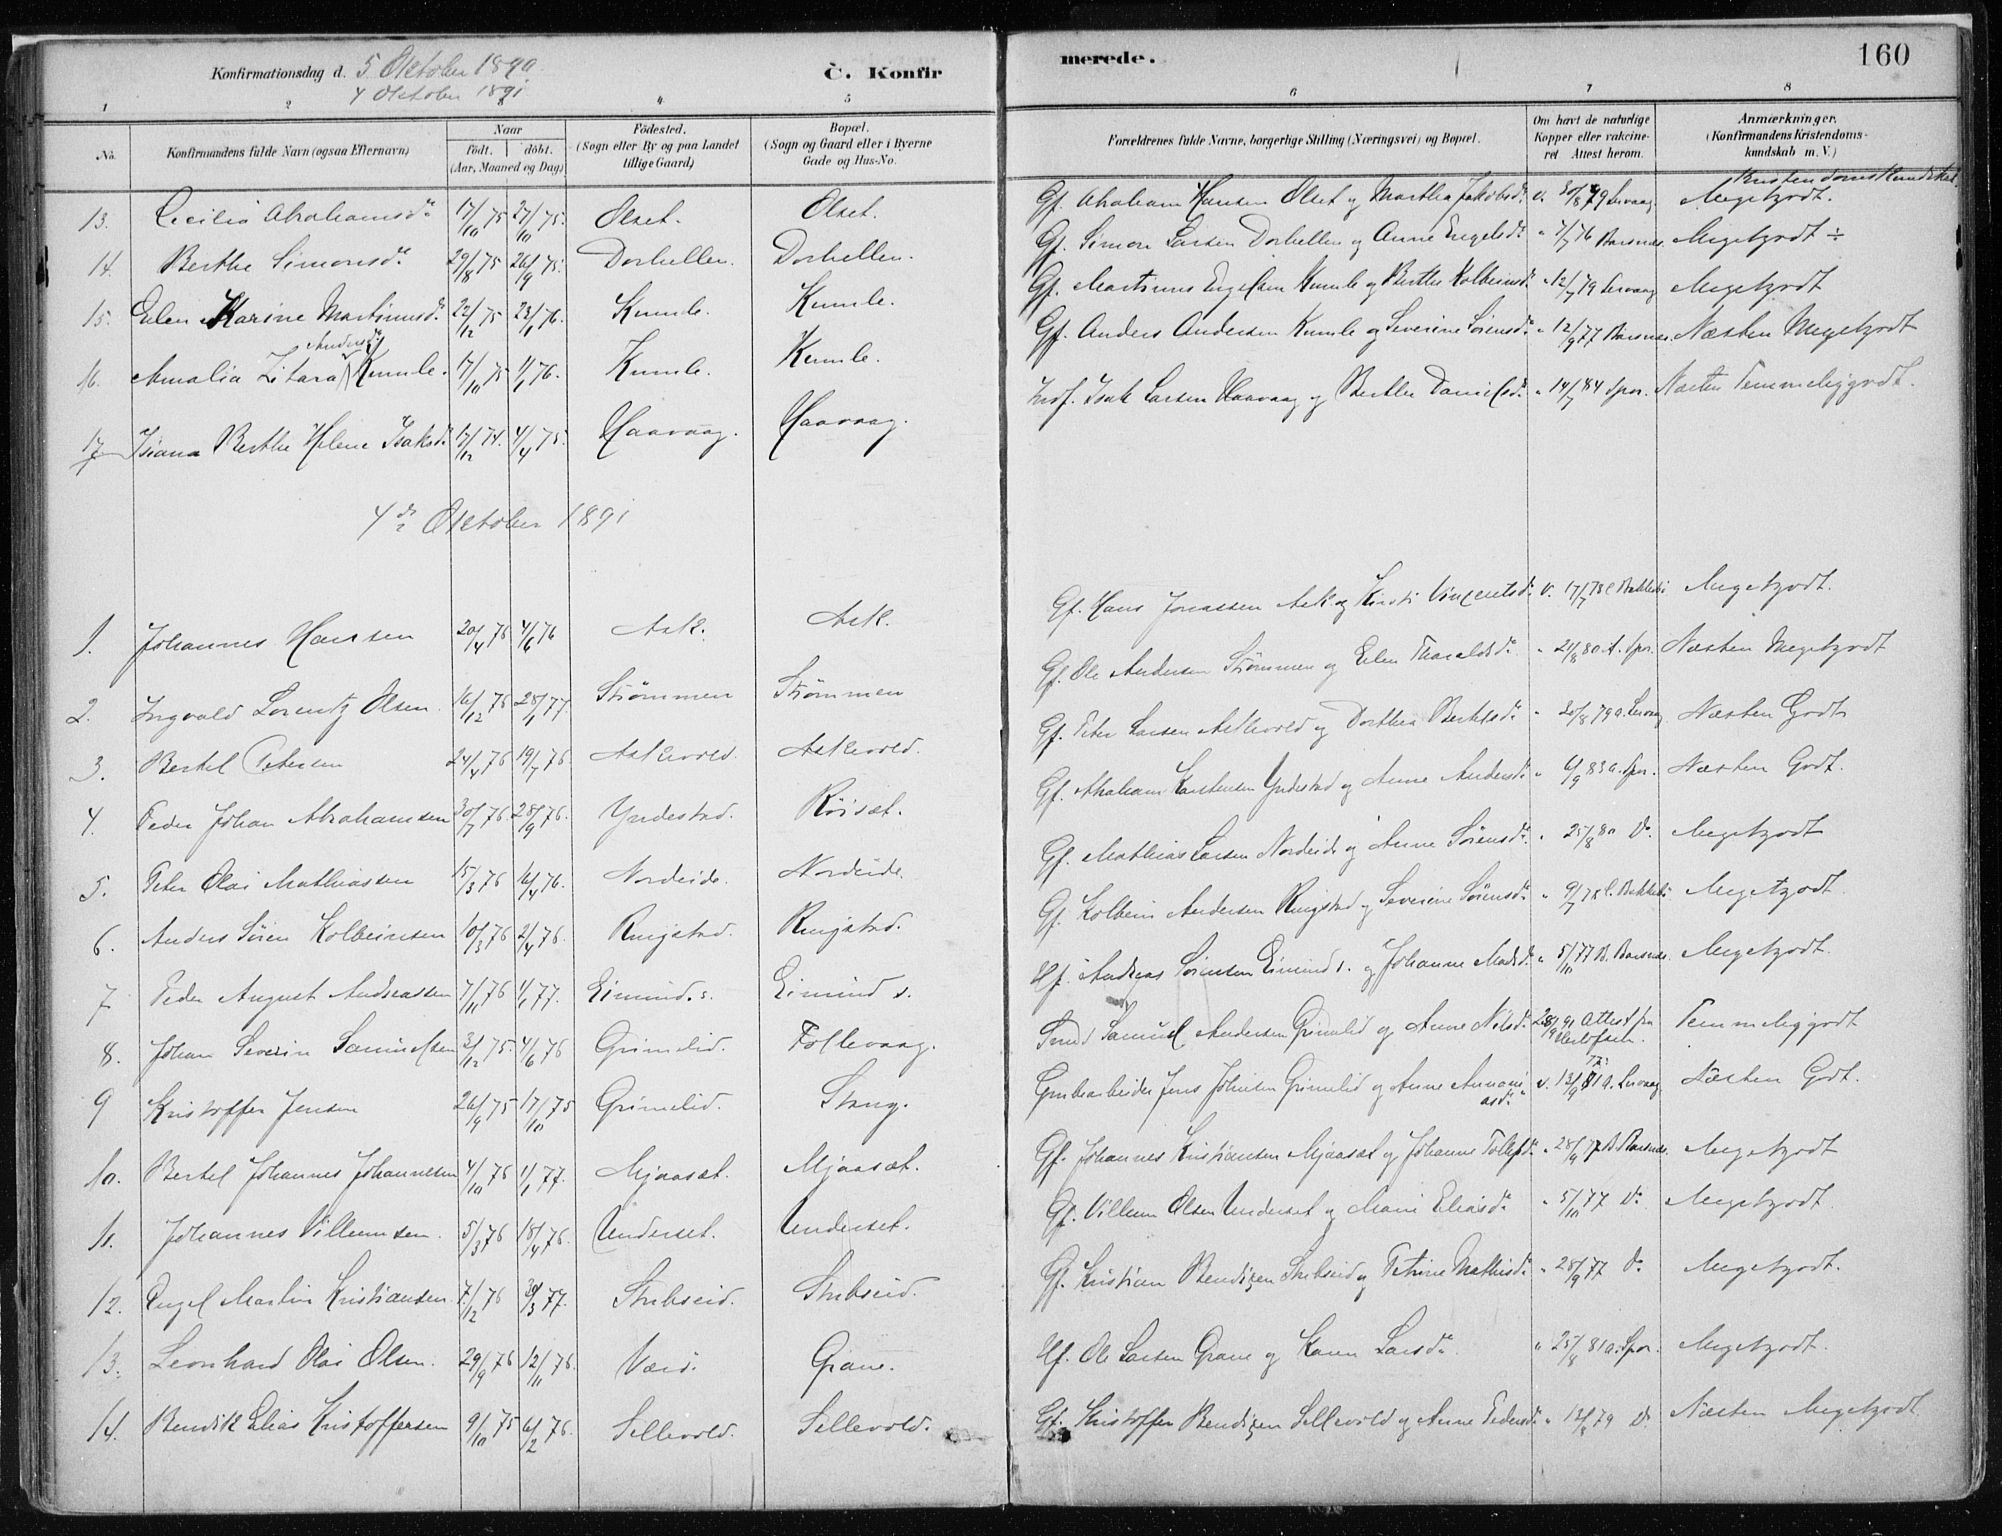 Konfirmationsdag d. 5 Oktober 1890
4 Oktober 1891
C. Konfirmerede.
160
1 2 3 4 5 6 7 8
No. Konfirmandens fulde Navn (ogsaa Efternavn) Naar födt. döbt. (Aar, Maaned og Dag) Födested. (Sogn eller By og paa Landet tillige Gaard) Bopæl. (Sogn og Gaard eller i Byerne Gade og Hus-No. Forældrenes fulde Navne, borgerlige Stilling (Næringsvei) og Bopæl. Om havt de naturlige Kopper eller vakcineret Attest herom. Anmærkninger. (Konfirmandens Kristendomskundskab m. V.)
Kristendomskundskab
13. Cecilia Abrahamsdr 17/10 75 27/10 75. Olset. Olset. Gf. Abraham Hansen Olset og Marthe Jakobsdr v. 30/8 79 Lervaag Megetgodt.
14. Berthe Simonsdr 29/8 75 26/9 75. Dorhellen. Dorhellen. Gf. Simon Larsen Dorhellen og Anne Engelsdr " 7/7 76 Barsnes. Megetgodt ÷
15. Elen Karine Martinusdr 22/12 75 23/1 76. Kumle. Kumle. Gf. Martinus Engelsen Kumle og Berthe Kolbeinsdr " 12/7 79 Lervaag Megetgodt
16. Amalia Zitara Andersdr Kumle. 17/10 75 1/1 76. Kumle. Kumle. Gf. Anders Andersen Kumle og Severine Sörensdr " 12/9 77 Barsnes. Næsten Megetgodt
17 Isiana Berthe Helene Isaksdr 17/12 74. 4/4 75. Haavaag. Haavaag. Indf. Isak Larsen Haavaag og Berthe Danielsdr " 14/7 84 Spor. Næsten Temmeliggodt.
4de Oktober 1891
1. Johannes Hansen 20/4 76 4/6 76 Ask. Ask. Gf. Hans Jonassen Ask og Kirsti Vincentsdr v. 17/7 78 C. Bakkebö Megetgodt.
2. Ingvald Lorentz Olsen. 16/12 76 28/1 77. Strømmen Strømmen Gf. Ole Andersen Strømmen og Elen Tharaldsdr " 21/8 80 A. Spor. Næsten Megetgodt
3. Bertel Petersen 24/4 76 19/7 76 Askevold. Askevold. Gf. Peter Larsen Askevold og Dorthea Bertelsdr " 20/8 79 a. Lervaag Næsten Godt
4. Peder Johan Abrahamsen 30/7 76. 28/9 76. Yndestad. Röiset. Gf. Abraham Karstensen Yndestad og Anne Andersdr " 6/9 83 a. Spor. Næsten Godt.
5. Peter Olai Mathiassen 15/3 76 16/4 76. Nordeide. Nordeide. Gf. Mathias Larsen Nordeide og Anne Sörensdr " 25/8 80 Do. Megetgodt
6. Anders Sören Kolbeinsen 10/3 76 2/4 76. Ringstad. Ringstad. Gf. Kolbein Andersen Ringstad og Severine Sörensdr " 9/7 78 C. Bakkebö Megetgodt.
7 Peder August Andreassen 7/11 76 1/1 77. Eimind. s. Eimind s. Hf. Andreas Sörensen Eimind s. og Johanne Madsdr " 5/10 77 B. Barsnes. Megetgodt.
8. Johan Severin Samuelsen 3/12 75. 4/6 76 Grimelid. Follevaag. Samuel Andersen Grimelid og Anne Nilsdr 28/9 91 Attest fra Temmeliggodt
9 Kristoffer Jensen 26/9 75 17/10 75 Grimelid. Stang. Grubearbeider Jens Johnsen Grimelid og Anne Ananiasdr v. 13/9 81 a. Lervaag Næsten Godt.
10. Bertel Johannes Johannesen 4/10 76 1/1 77. Mjaaset. Mjaaset. Gf. Johannes Kristiansen Mjaaset og Johanne Tollefsdr " 28/9 77 B. Barsnes. Megetgodt
11. Johannes Villumsen. 5/3 76 18/4 76. Underset. Underset. Gf. Villum Olsen Underset og Marie Eliasdr " 5/10 77 Do. Megetgodt.
12. Engel Martin Kristiansen 7/12 76 30/3 77. Stubseid. Stubseid. Gf. Kristian Bendixen Stubseid og Petrine Mathisdr " 28/9 77 Do. Megetgodt.
13. Leonhard Olai Olsen. 29/9 76 12/11 76. Værö. Grane. Hf. Ole Larsen Grane og Karen Larsdr " 25/8 81 a. Spor. Megetgodt.
14. Bendik Elias Kristoffersen 9/10 75 6/2 76. Sellevold. Sellevold. Gf. Kristoffer Bendixen Sellevold og Anne Pedersdr " 12/8 79 Do Næsten Megetgodt